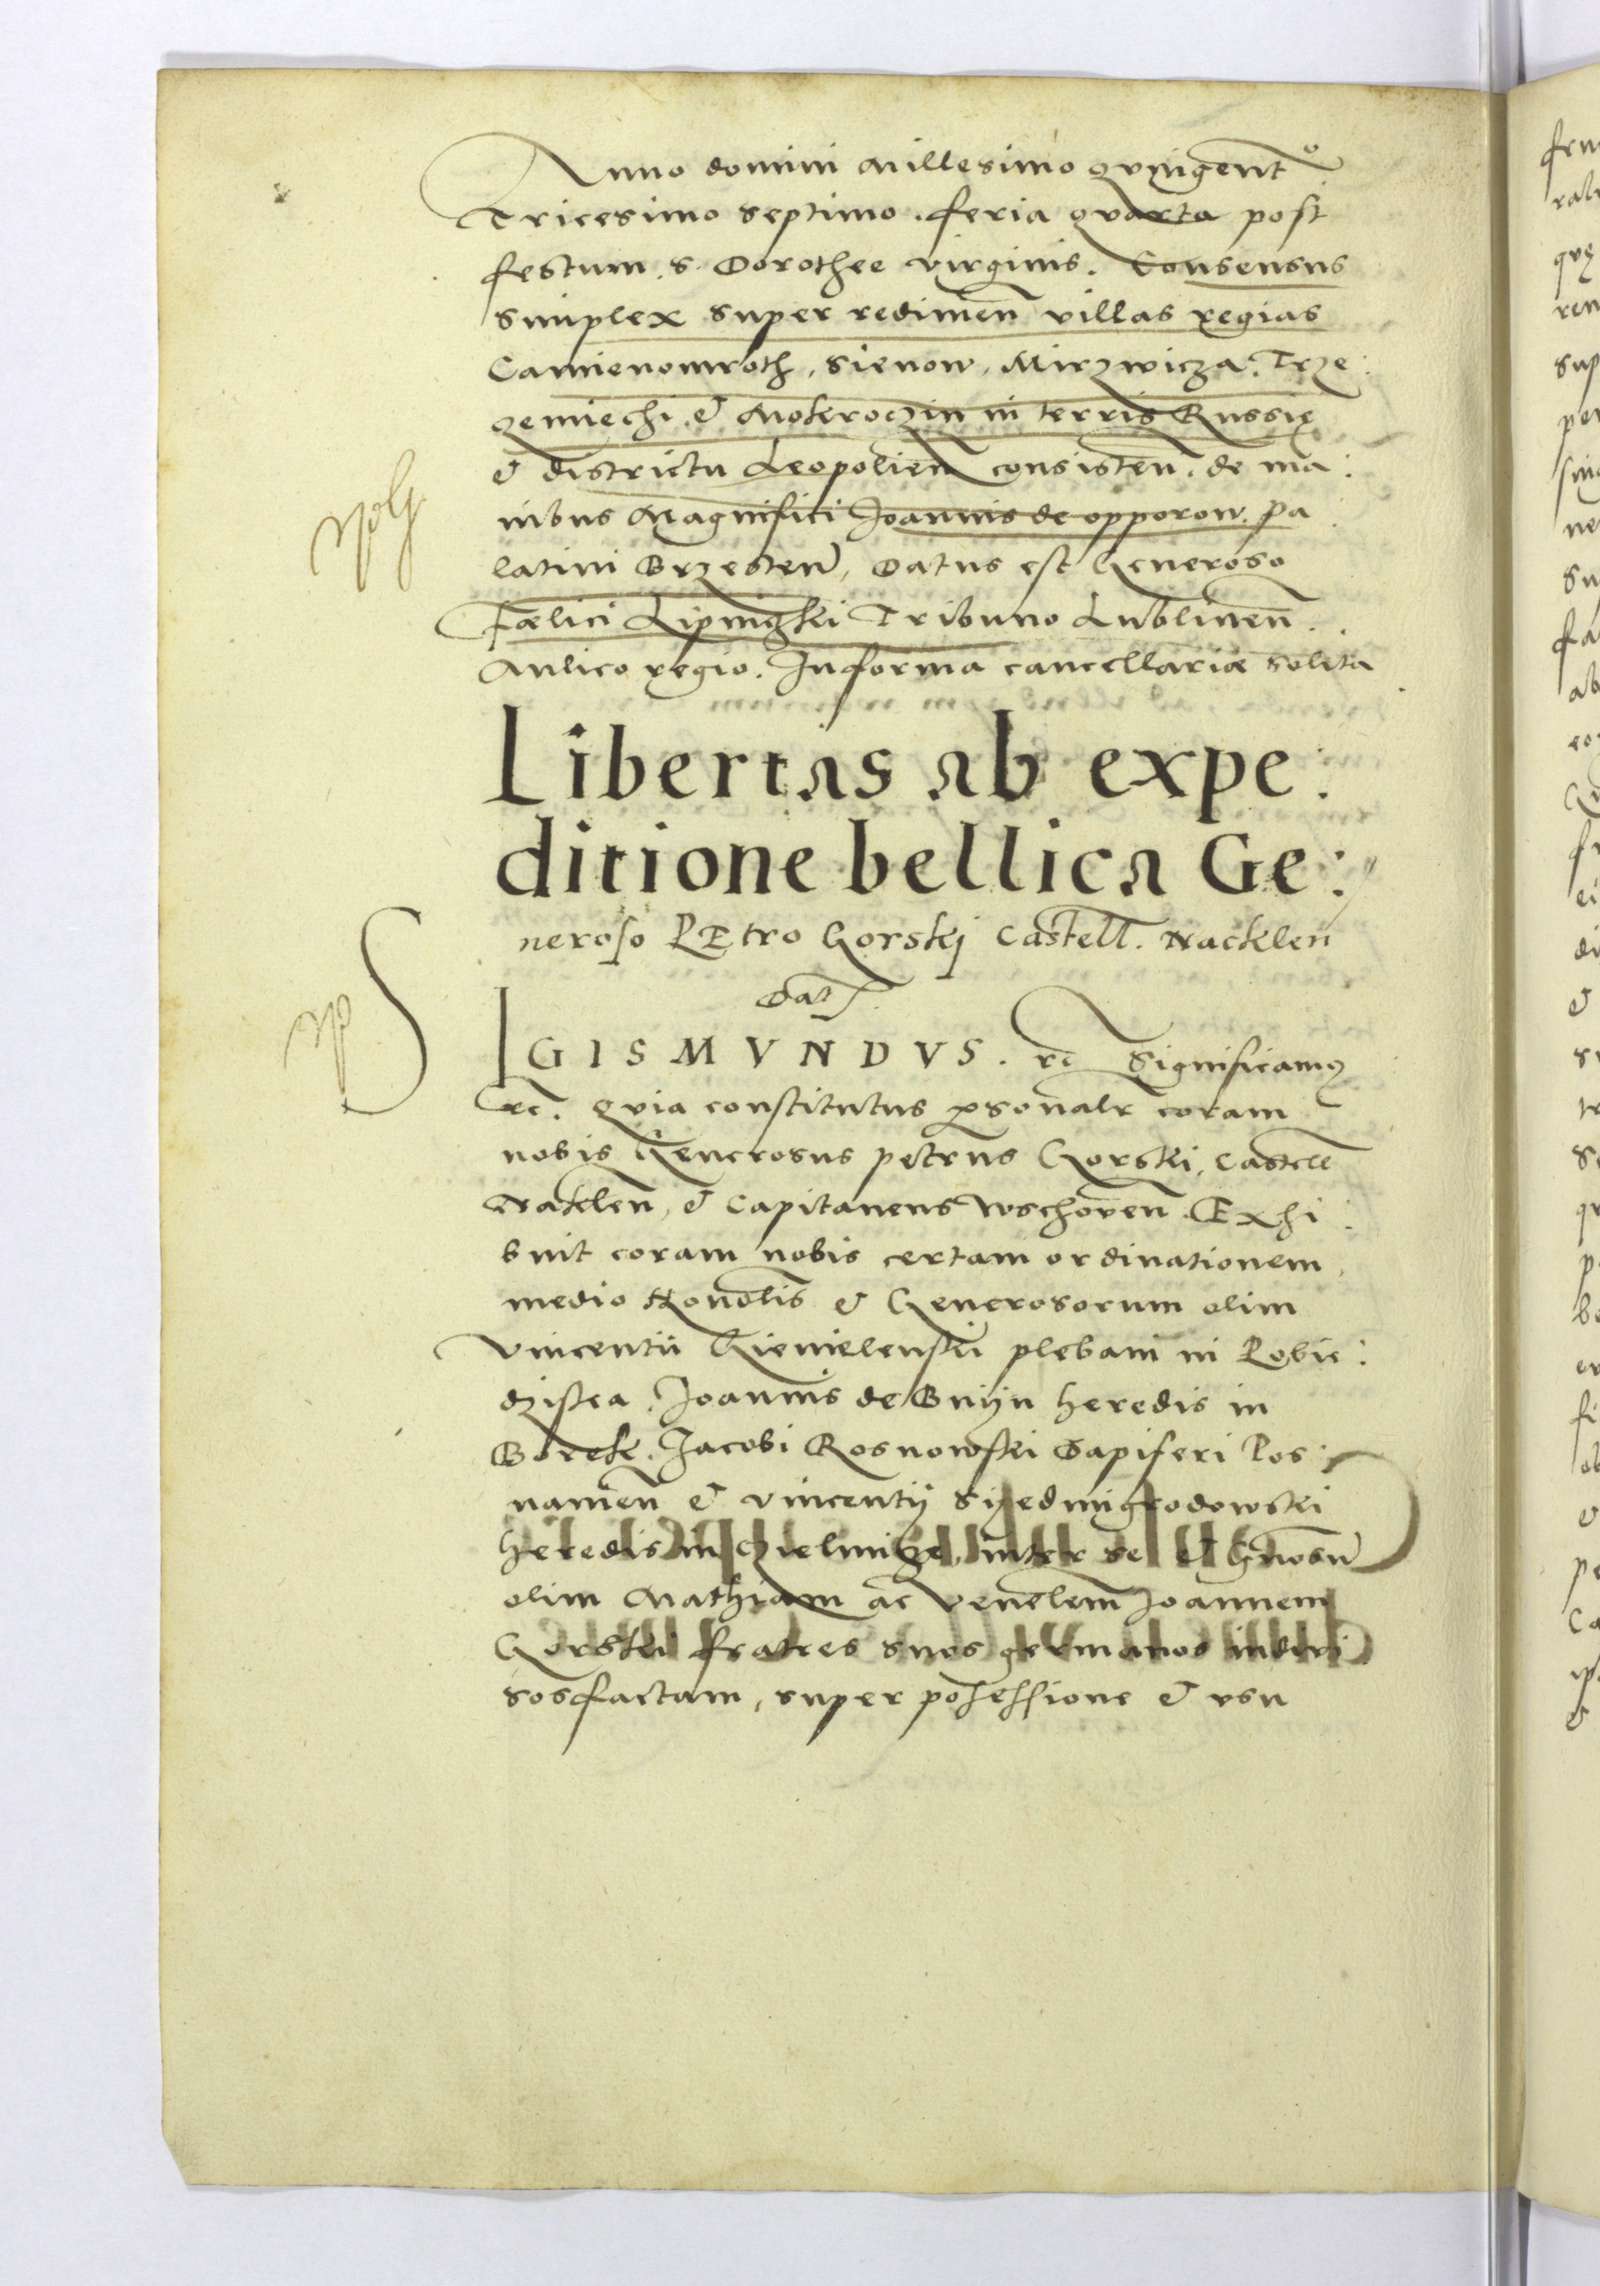 Anno domini Millesimo quingent°
Tricesimo septimo. feria quarta post
festum. s. Dorothee virginis. Consensus
simplex super redimen̄ villas regias
Camienomroth, Sienow, Mirzwicza: Trze:
zemiechi. & Mokroczin in terris Russię
& districtu Leopolien̄ consisten̄. de ma:
nibus Magnifici Joannis de opporow. pa
latini Brzesten̄, Datus est Generoso
Fælici Lipnigski Tribuno Lublinen̄.
Aulico regio. In forma cancellariæ solita
Libertas ab expe:
ditione bellica Ge:
neroso PEtro Gorskj Castell. Nacklen
Dat
SIGISMVNDVS. rc Significamꝰ
rc. quia constitutus ꝑsonalr coram
nobis Generosus petrus Gorski, Castelł
Naklen̄, & Capitaneus Wschoven̄. Exhi:
buit coram nobis certam ordinationem
medio Honolis & Generosorum olim
Vincentii plebani in Pobie:
dziska. Joannis de Bnijn heredis in
Borek. Jacobi Rosnowski Dapiferi Pos:
namen̄ & Vincentij Siyedmigrodowski
heredis in inter se & Gnosū
olim Mathiam ac Venelem Joannem
Gorski fratres suos germanos indivi
sos factam, super possessione & vsu